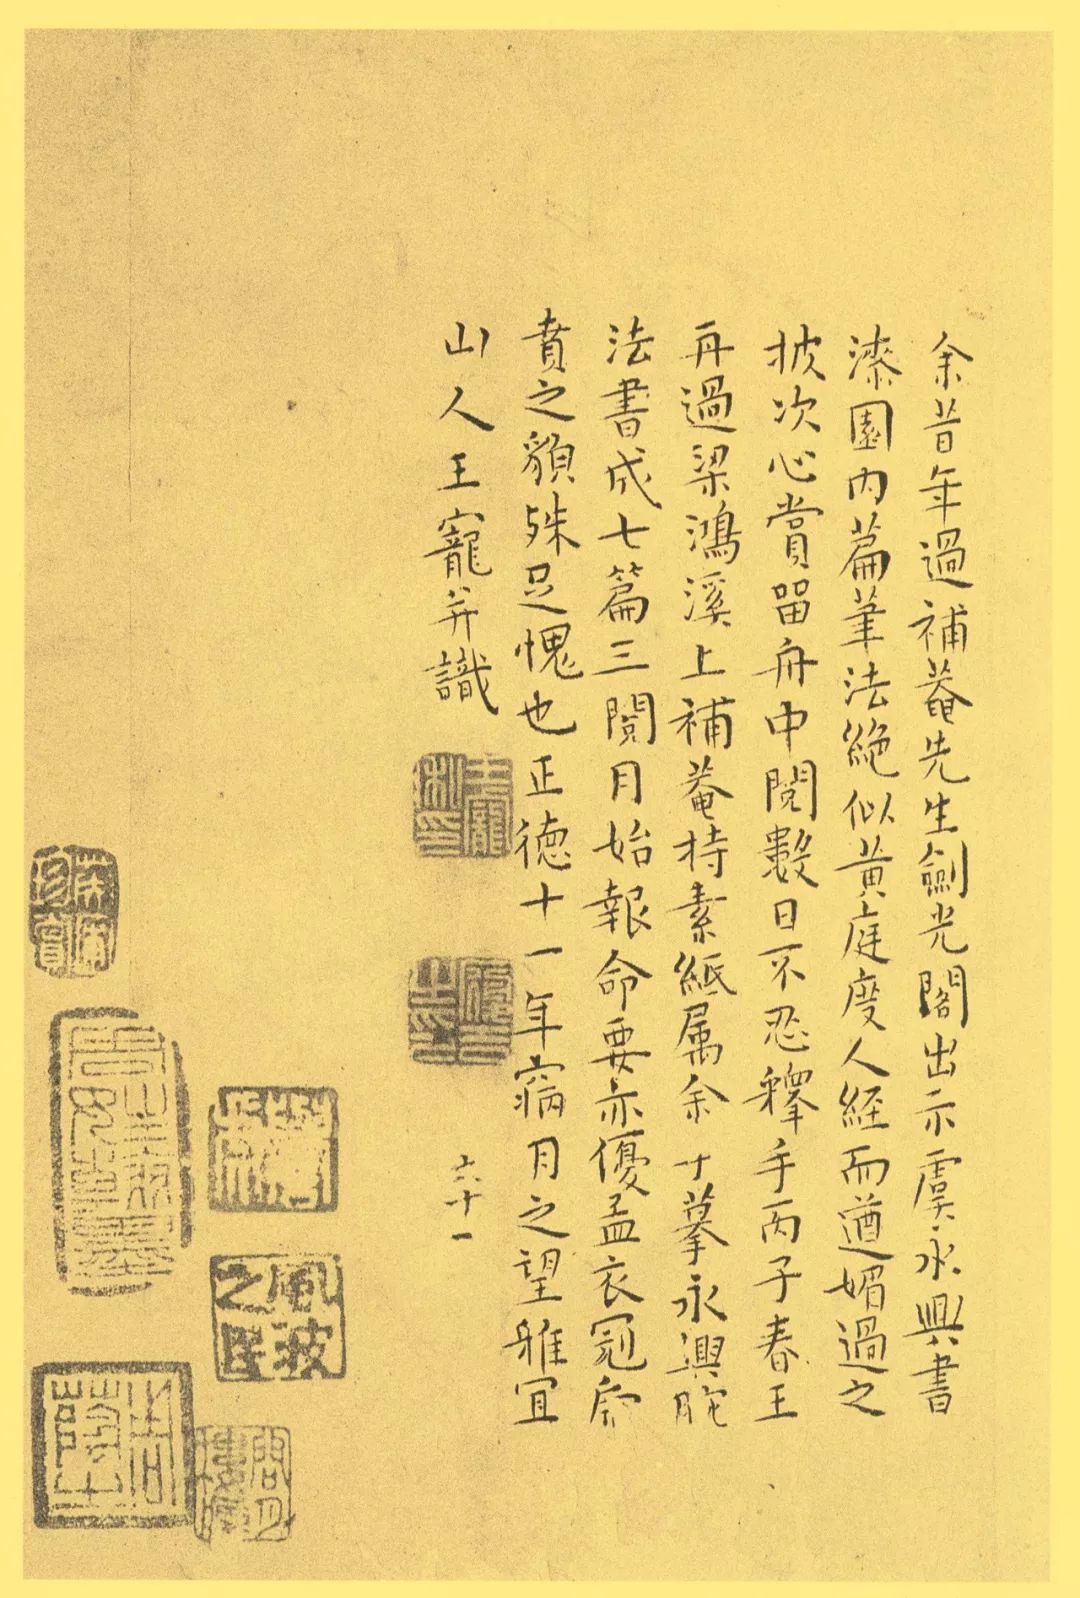 余昔年過補菴先生劍光閣出示虞永興書
漆園內篇筆法絕似黃庭度人經而遒媚過之
披次心賞留舟中閱數日不忍釋手丙子春王
再過梁鴻溪上補菴持素紙属余寸摹永興
法書成七篇三閱月始報命要亦優孟衣冠
賁之貌殊足愧也正德十一年病月之望雅宜
山人王寵并識
王寵
六十一
風波之民